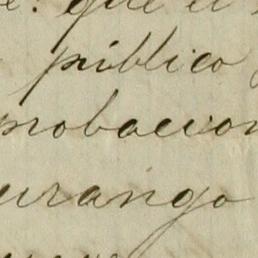 que el
público
probacion
urango